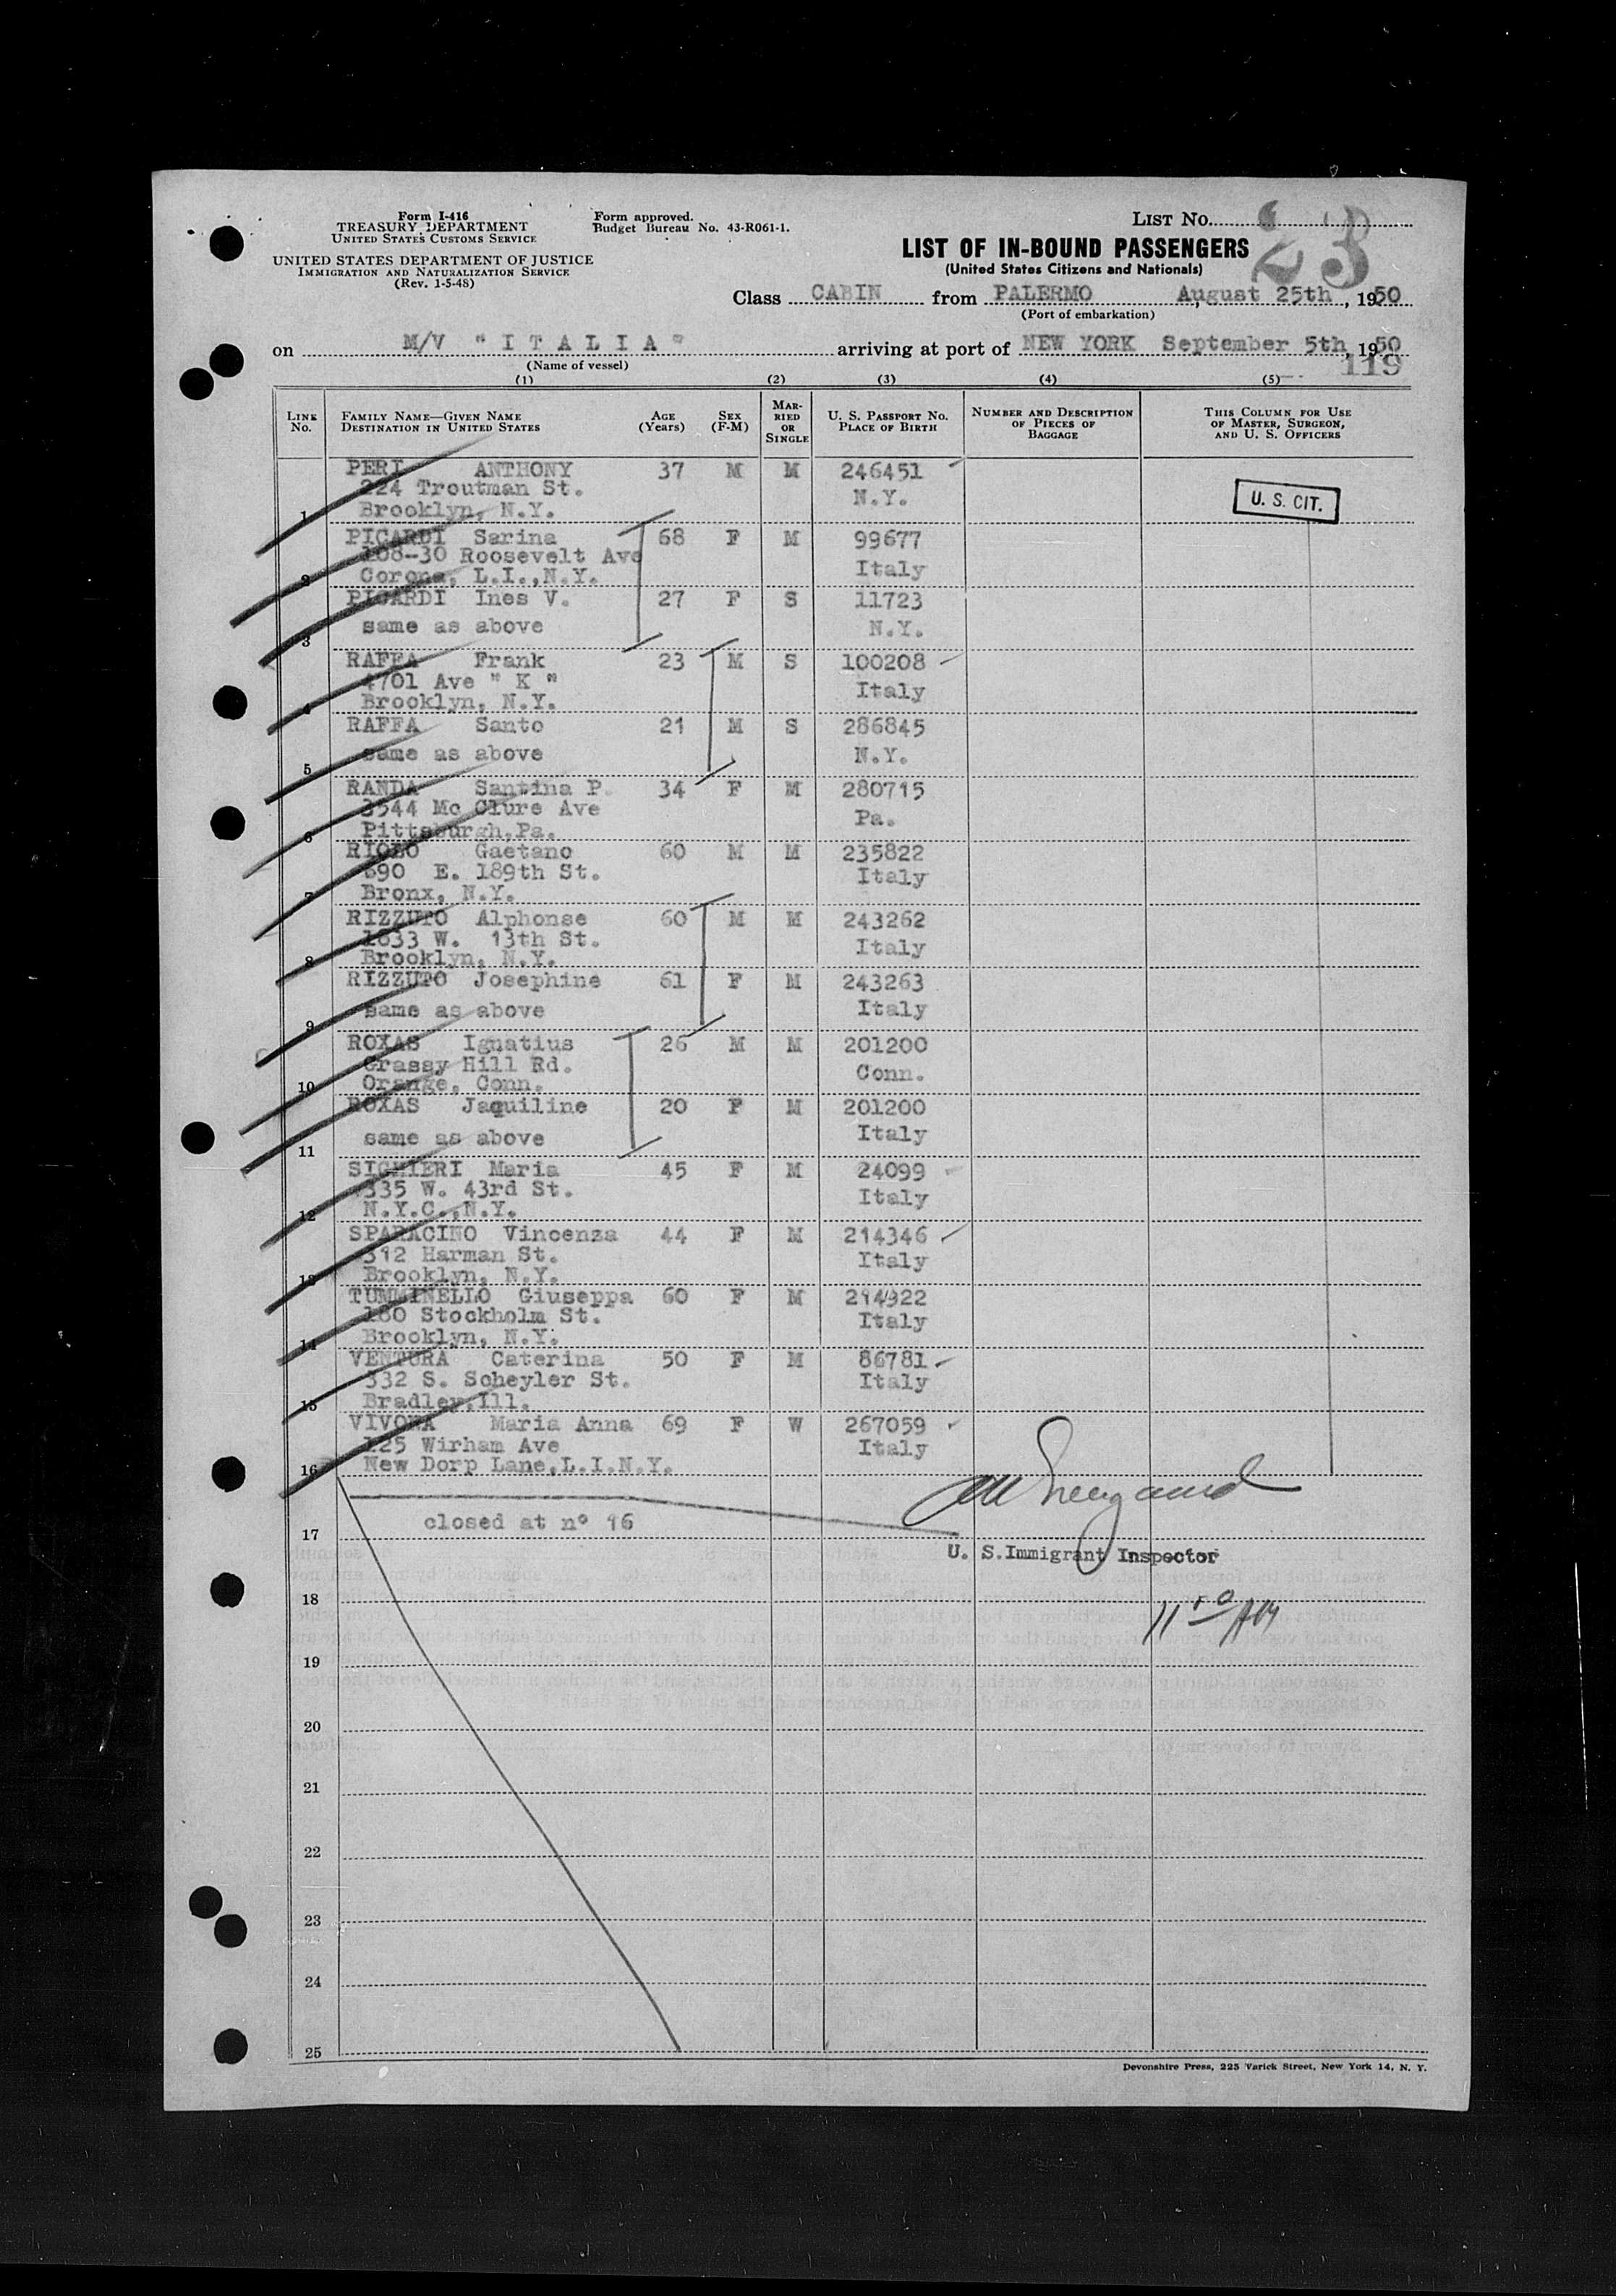 Form I-416
TREASURY DEPARTMENT
UNITED STATES CUSTOMS SERVICE
UNITED STATES DEPARTMENT OF JUSTICE
IMMIGRATION AND NATURALIZATION SERVICE
(Rev. 1-5-48)
Form approved.
Budget Bureau No. 43-R061-1.
LIST No. 23
LIST OF IN-BOUND PASSENGERS
(United States Citizens and Nationals)
Class CABIN from PALERMO August 25th, 1950
(Port of embarkation)
on M/V "ITALIA" arriving at port of NEW YORK September 5th, 1950
(Name of vessel)
119
(1) (2) (3) (4) (5)
LINE No. FAMILY NAME—GIVEN NAME DESTINATION IN UNITED STATES AGE (Years) SEX (F-M) MARRIED OR SINGLE U. S. PASSPORT NO. PLACE OF BIRTH NUMBER AND DESCRIPTION OF PIECES OF BAGGAGE THIS COLUMN FOR USE OF MASTER, SURGEON, AND U. S. OFFICERS
PERI ANTHONY 37 M M 246451
224 Troutman St. N.Y. U. S. CIT.
1 Brooklyn, N.Y.
PICARDI Sarina 68 F M 99677
108-30 Roosevelt Ave Italy
2 Corona, L.I.,N.Y.
PICARDI Ines V. 27 F S 11723
3 same as above N.Y.
RAFFA Frank 23 M S 100208
4701 Ave " K " Italy
4 Brooklyn, N.Y.
RAFFA Santo 21 M S 286845
5 same as above N.Y.
RANDA Santina P. 34 F M 280715
3544 Mc Clure Ave Pa.
6 Pittsburgh,Pa.
Gaetano 60 M M 235822
690 E. 189th St. Italy
7 Bronx, N.Y.
RIZZUTO Alphonse 60 M M 243262
1633 W. 13th St. Italy
8 Brooklyn, N.Y.
RIZZUTO Josephine 61 F M 243263
9 same as above Italy
ROXAS Ignatius 26 M M 201200
Grassy Hill Rd. Conn.
10 Orange, Conn.
ROXAS Jaquiline 20 F M 201200
11 same as above Italy
SIGHIERI Maria 45 F M 24099
335 W. 43rd St. Italy
12 N.Y.C.,N.Y.
SPARACINO Vincenza 44 F M 214346
312 Harman St. Italy
13 Brooklyn, N.Y.
TUMMINELLO Giuseppa 60 F M 214922
180 Stockholm St. Italy
14 Brooklyn, N.Y.
VENTURA Caterina 50 F M 86781
332 S. Scheyler St. Italy
15 Bradley,Ill.
VIVONA Maria Anna 69 F W 267059
125 Wirham Ave Italy
16 New Dorp Lane,L.I.N.Y.
17 closed at nº 16
U. S. Immigrant Inspector
18
19
20
21
22
23
24
25
Devonshire Press, 225 Varick Street, New York 14, N. Y.